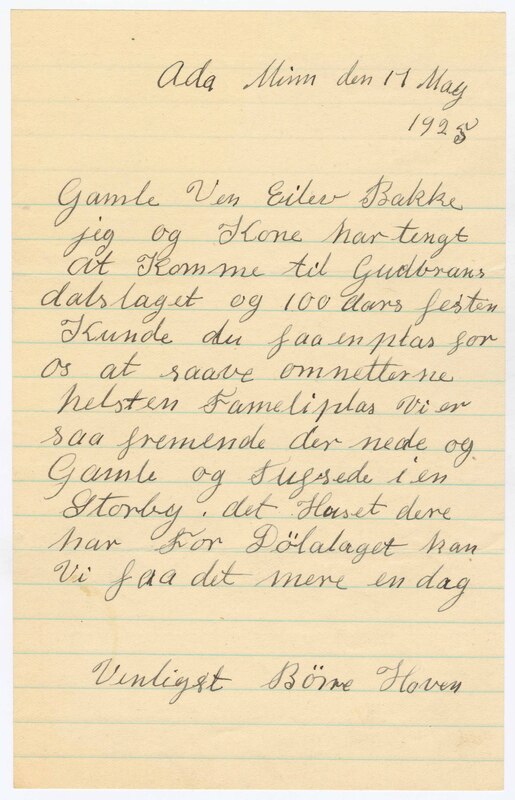 Ada Minn den 17 May
1925
Gamle Ven Eilev Bakke
jeg og Kone har tengt
at Komme til Gudbrans
dalslaget og 100 aars festen
Kunde du faa en plas for
os at saave om netterne
helsten Fameliplas Vi er
saa fremende der nede og
Gamle og i en
Storby. det Huset dere
har For Dölalaget kan
Vi faa det mere en dag
Venligst Hoven